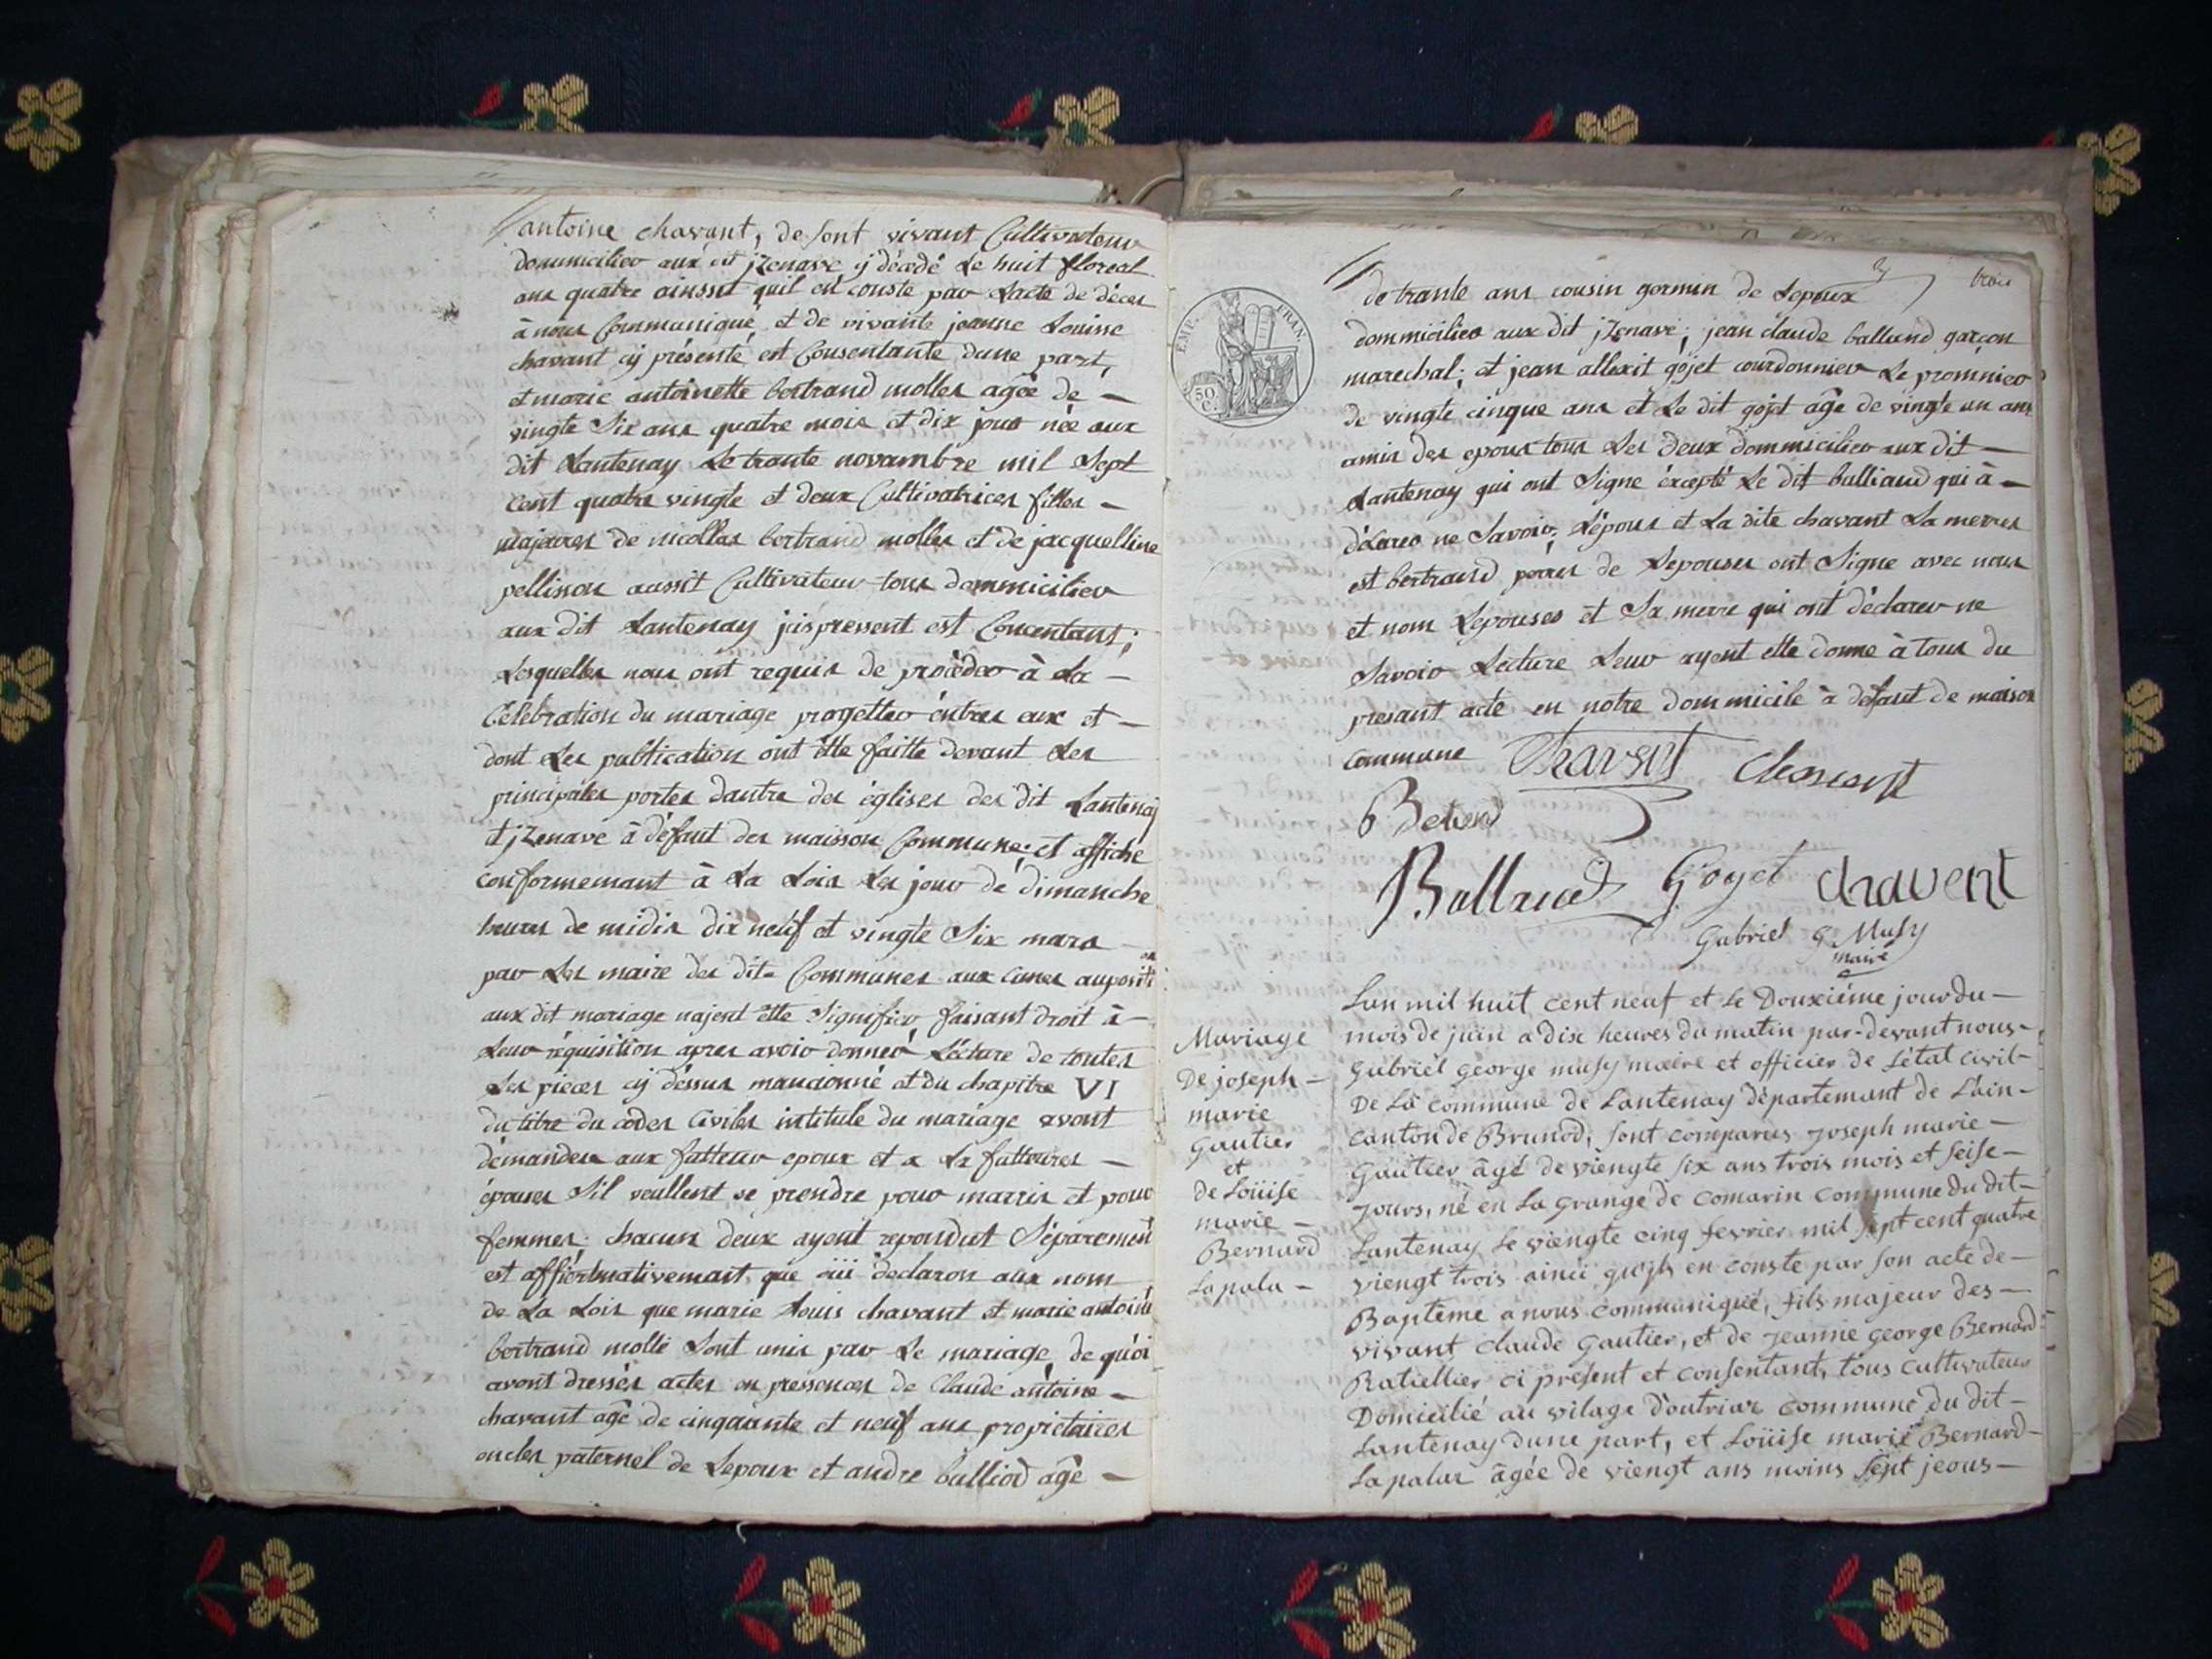 antoine chavant, de sont vivant Cultivateur
dommicilier aux dit jzenave y décédé Le huit floreal
ans quatre ainssit quil en conste par Lacte de déces
à nous Communiqué et de vivante jeanne Louisse
chavant cÿ présenté est Consentante dune part,
et marie antoinette bertrand molles agée de —
vingte Six ans quatre mois et dix jour née aux
dit Lantenay Le trante novambre mil Sept
cent quatre vingte et deux Cultivatrices filles —
majeures de nicollas bertrand molles et de jacquelline
pellisson aussit Cultivateur tous dommicilier
aux dit Lantenay present est Concentant;
Lesquelles nous ont requis de proceder à La —
Célébration du mariage progetter éntres eux et —
dont Les publication ont ètte faitte devant Les
principales portes dantre des églises des dit Lantenay
et jzenave à défaut des maisson Commune; et affiche
conformemant à La Lois Les jour dé dimanche
heures de midis dix neuf et vingte Six mars —
par Les maire des dite Communes aux cunes auposition
aux dit mariage najent ètte Signifier faisant droit à —
Leur réquisition apres avoir donner Lécture de toutes
Les pieces cÿ déssus mancionné et du chapitre VI
du titre du codes Civiles intitule du mariage avont
démander aux futteur epoux et a La futteures —
épouses Sil veullent se prendre pour marris et pour
femmes; chacun deux ayent repondut Séparement
est affiertmativemant que oüi declaron aux nom
de La Lois que marie Louis chavant et marie antoinete
bertrand molle Sont unis par Le mariage de quöi
avont dressés actes en pressences de Claude antoine —
chavant agé de cinquante et neuf ans proprietaires
oncles paternel de Lepoux et andre balliod âgé —
trois
de trante ans cousin germin de Lepoux
dommicilier aux dit jzenave; jean claude balland garçon
marechal; et jean allexit gojet courdonnier Le promnier
de vingte cinque ans et Le dit gojet âge de vingte un ans
amis des epoux tous Les deux dommicilier aux dit —
Lantenay qui ont Signe éxcepté Le dit balliaud qui à —
déLarer ne Savoir; Lépoux et La dite chavant La merres
est bertrand perres de Lepouses ont Signe avec nous
et nom Lepouses et Sa merre qui ont déclarer ne
Savoir Lecture Leur ayent ette donne à tous du
presant acte en notre dommicile à défaut de maison
commune Chavant Chavant
Betrend
Balland Goyet chavent
Gabriel G Musy
maire
Lan mil huit cent neuf et le Douxiéme jour du —
mois de juin a dix heures du matin par-devant nous —
Gabriél George musy maire et officier de Létat civil —
De La commune de Lantenay département de L'ain —
canton de Brunod, sont comparus Joseph marie —
Gautier âgé de viengte six ans trois mois et seise —
jours, né en La grange de comarin commune du dit —
Lantenay Le viengte cinq fevrier mil sept cent quatre
viengt trois ainci en conste par son acte de —
Baptême a nous communiqué, fils majeur des —
vivant claude Gautier, et de jeanne George Bernard
Ratiellier ci présent et consentant, tous cultivateur
Domicilié au vilage D'outriaz commune du dit —
Lantenay dune part, et Loüise marie Bernard —
Lapalus âgée de viengt ans moins sept jeous —
Mariage
De joseph —
marie
Gautier
et
de Loüise
marie —
Bernard
Lapala —
EMP. FRAN.
50 C.